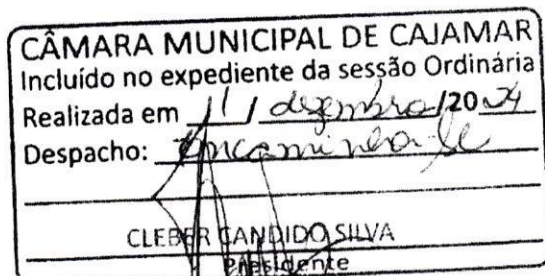 CÂMARA MUNICIPAL DE CAJAMAR
Incluído no expediente da sessão Ordinária
Realizada em 11 / dezembro /20 24
Despacho: Encaminha-se
CLEBER CANDIDO SILVA
Presidente